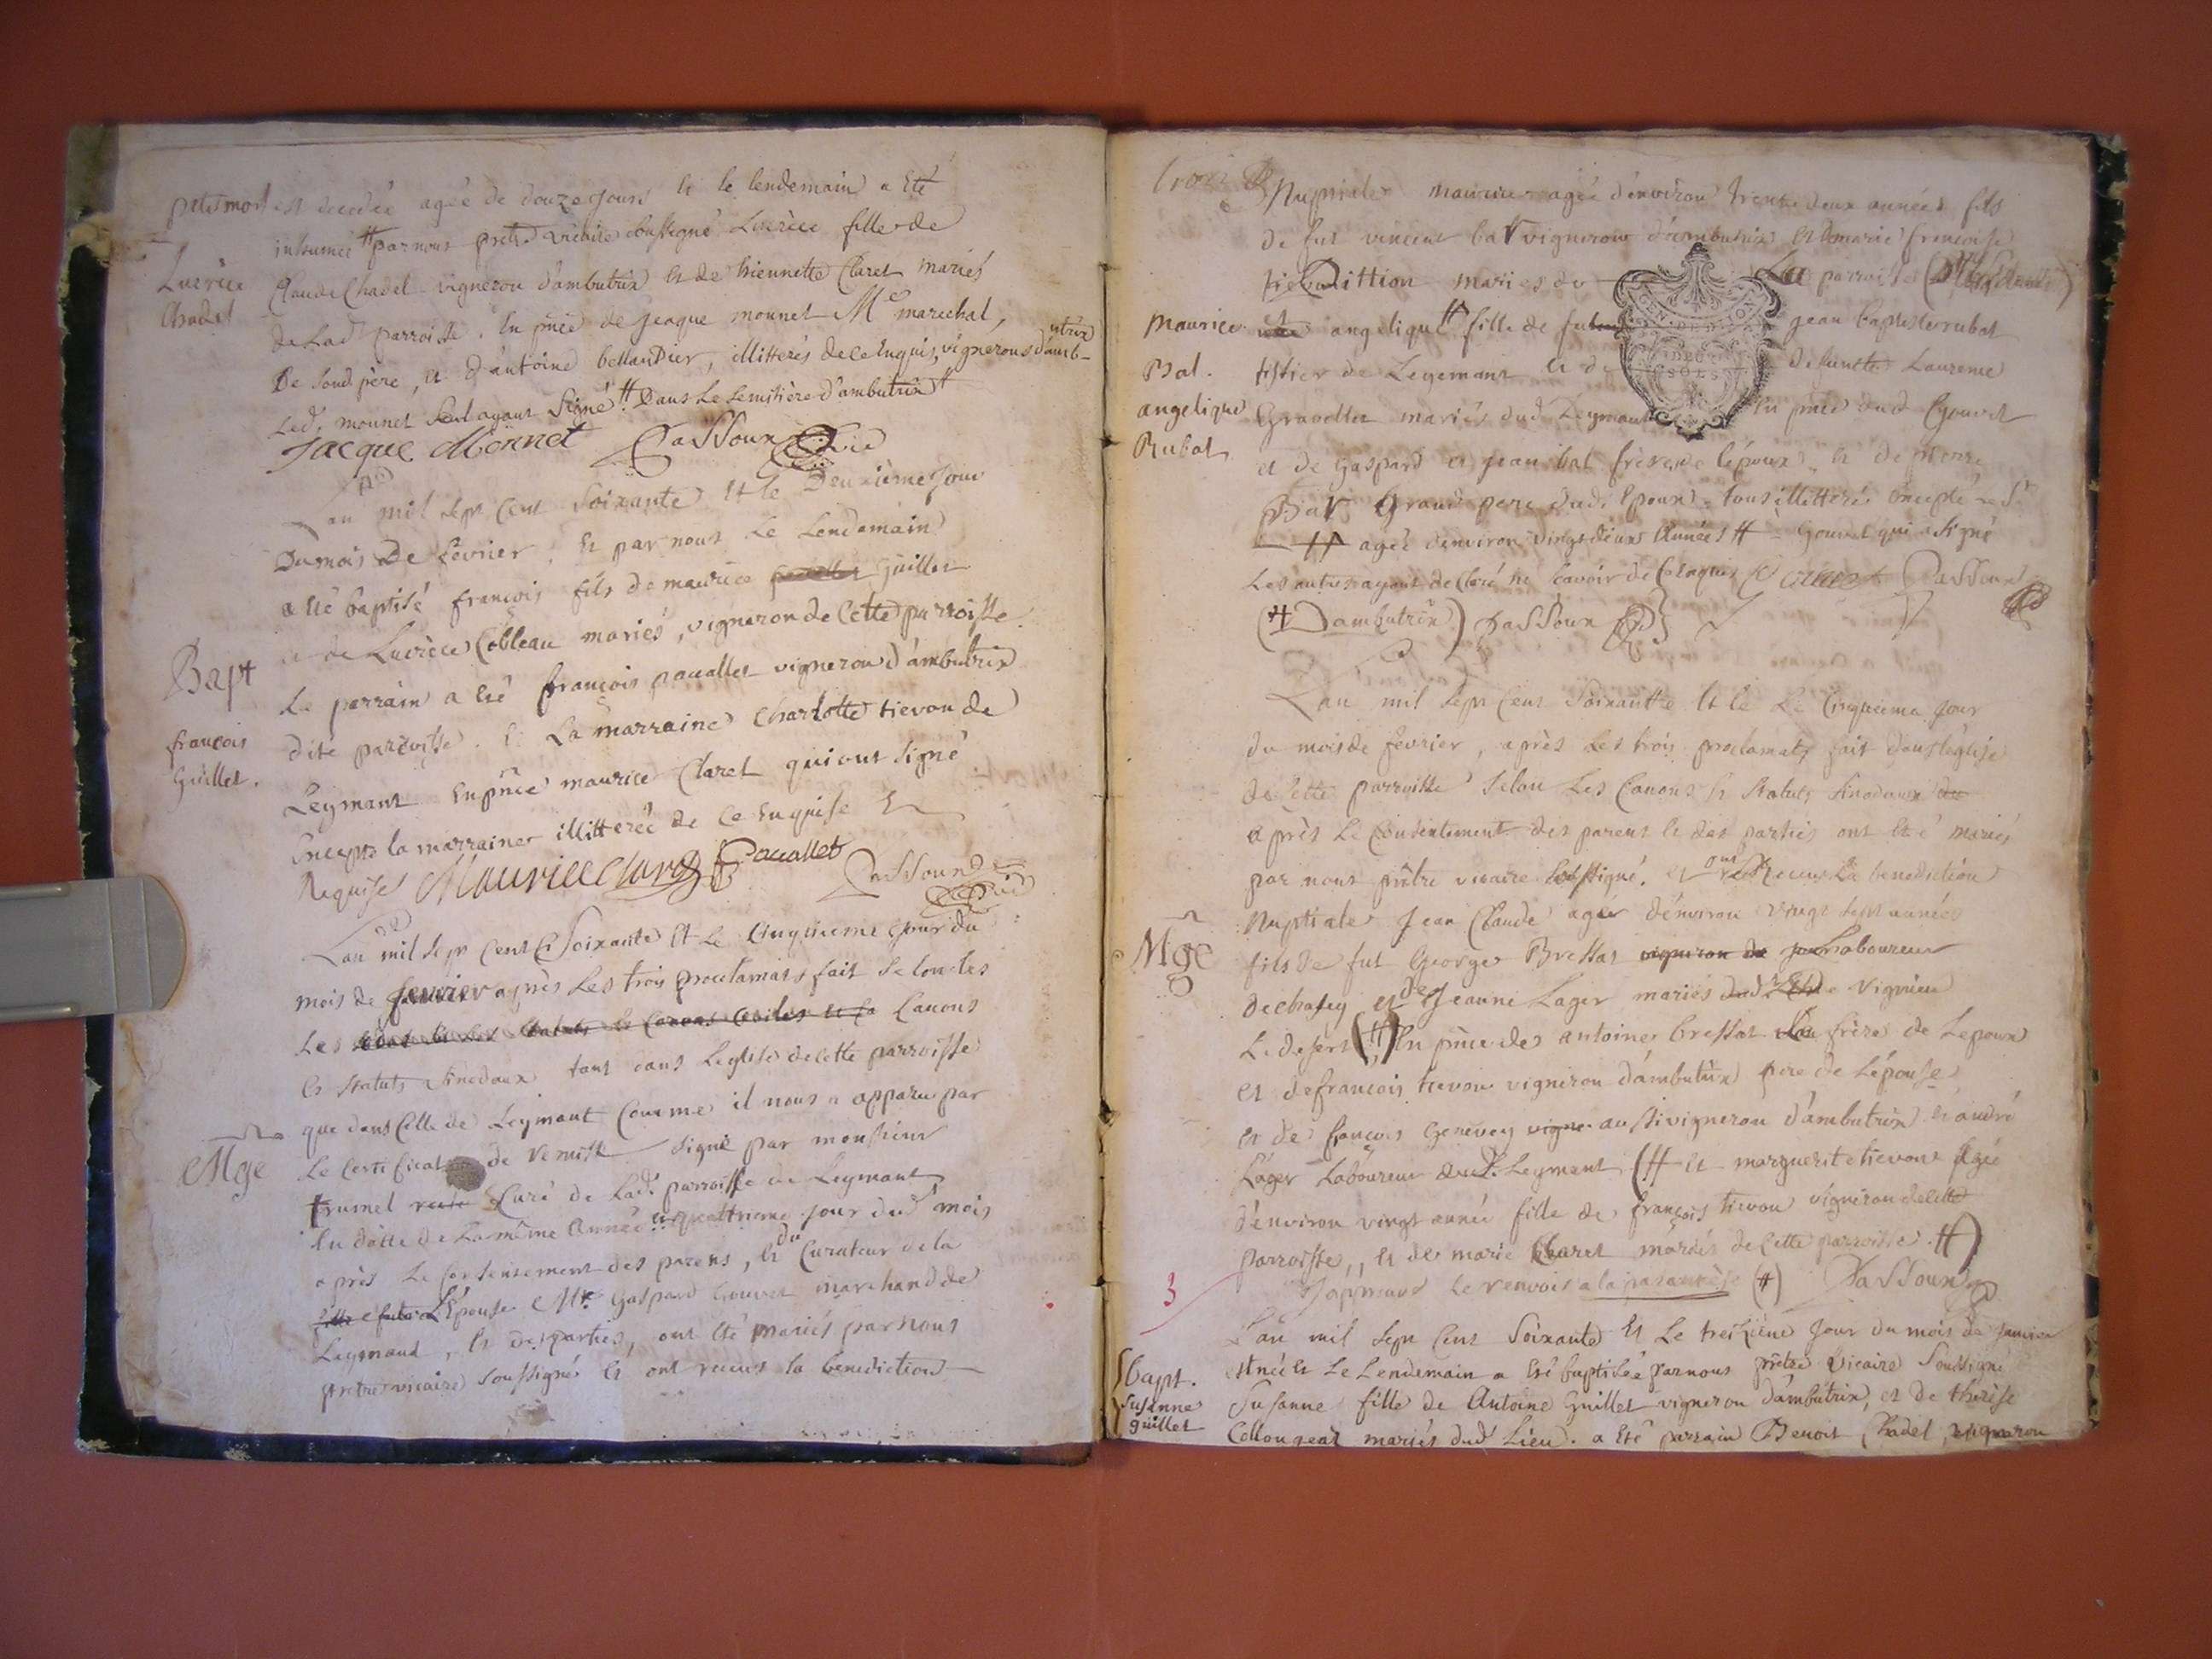 petit mort
Lucrèce
Chadel
est decedée agée de douze jours et le lendemain a eté
inhumée # par nous pretre vicaire soussigné Lucrèce fille de
Claude Chadel vigneron d'ambutrix et de Thiennette Claret mariés
de Lad parroisse. En pñce de Jeaque monnet Me marechal,
De soud père, et d'antoine bellandier, illitterés de ce Enquis, vignerons d'amb-
utrix
Led. monnet seul ayant signé # Dans le semitière d'ambutrix #
Jacque Monnet Passoux
Bapt
françois
Guillet.
L'an mil sept Cent Soixante Et le Deuxième jour
Du mois De fevrier, Et par nous Le Lendemain
a eté baptisé françois fils de maurice Guillet
et de Lucrèce Cobleau mariés, vigneron de Cette parroisse
Le parrain a eté françois pacallet vigneron d'ambutrix
dite paroisse. Et La marraine Charlotte tievon de
Leymant En pñce maurice Claret qui ont signé
Excepté la marraine illitterée de ce Enquise Et
Requise Maurice Claret Pacallet
Passoux
Mge
L'an mil sept Cent Soixante Et Le Cinquieme jour du
mois de fevrier après Les trois proclamats fait selon les
Les Canons
Et statuts sinodaux tant dans Leglise de cette parroisse
que dans Celle de Leymant Comme il nous a apparu par
Le Certificat de remise signé par monsieur
trumel Curé de Lad. parroisse de Leymant
En datte de La même Année et quattrieme jour dud mois
après Le Consentement des parens, Et du Curateur de la
L'Epouse Mr. Gaspard Gouvet marchand de
Leymand, Et des parties, ont eté mariés par nous
pretre vicaire soussigné Et ont receus la benediction
trois
Maurice
Bal.
angelique
Rubat
Nuptiale maurice agée d'environ trente deux années fils
de fut vincent bal vigneron d'ambutrix et de marie françoise
mariés de La parroisse
et angelique # fille de fut jean baptiste rubat
tissier de Leyemant et de defuncte Laurence
Gravellet mariés dud Leymant En pñce dud Gouvet
et de Gaspard et jean bal frère de l'époux, et de pierre
Bal Grand pere dud. Epoux tous illitterés Excepté le Sr
# agée denviron vingt deux Années # Gouvet qui a signé
Les autres ayant declaré ne savoir de ce enquis Gouvet Passoux
(# D'ambutrix) Passoux
Mge
L'an mil sept Cent Soixantte Et le Le Cinquieme jour
du mois de fevrier, après Les trois proclamats fait dans l'eglise
de Cette parroisse selon Les Canons Et statuts sinodaux
après Le Consentement des parens Et des parties ont eté mariés
par nous prêtre vicaire soussigné. et ont Receus La benediction
Nuptiale Jean Claude agée d'environ vingt sept années
fils de fut George Bressat vigneron de Laboureur
de chasey et de Jeanne Lager mariés de vignieu
Le desert (#) En pñce de antoine bressat frère de Lepoux
et de françois tievon vigneron d'ambutrix pere de L'épouse
et de françois Genevey vigne aussi vigneron d'ambutrix et andré
Lager Laboureur Leyment (# Et marguerite tievon agée
d'environ vingt année fille de françois tievon vigneron de cette
parroisse, et de marie Claret mariés de cette parroisse #)
J'approuve Le renvois a la parantèse (#) Passoux
3
Bapt.
Susanne
Guillet
L'an mil sept Cent Soixante Et Le treizième jour du mois de janvier
est née Et Le Lendemain a eté baptisée par nous prêtre Vicaire Soussigné
Susanne fille de Antoine Guillet vigneron d'ambutrix, et de therèse
Collongeat mariés dud Lieu. a eté parrain Benoit Chadel vigneron